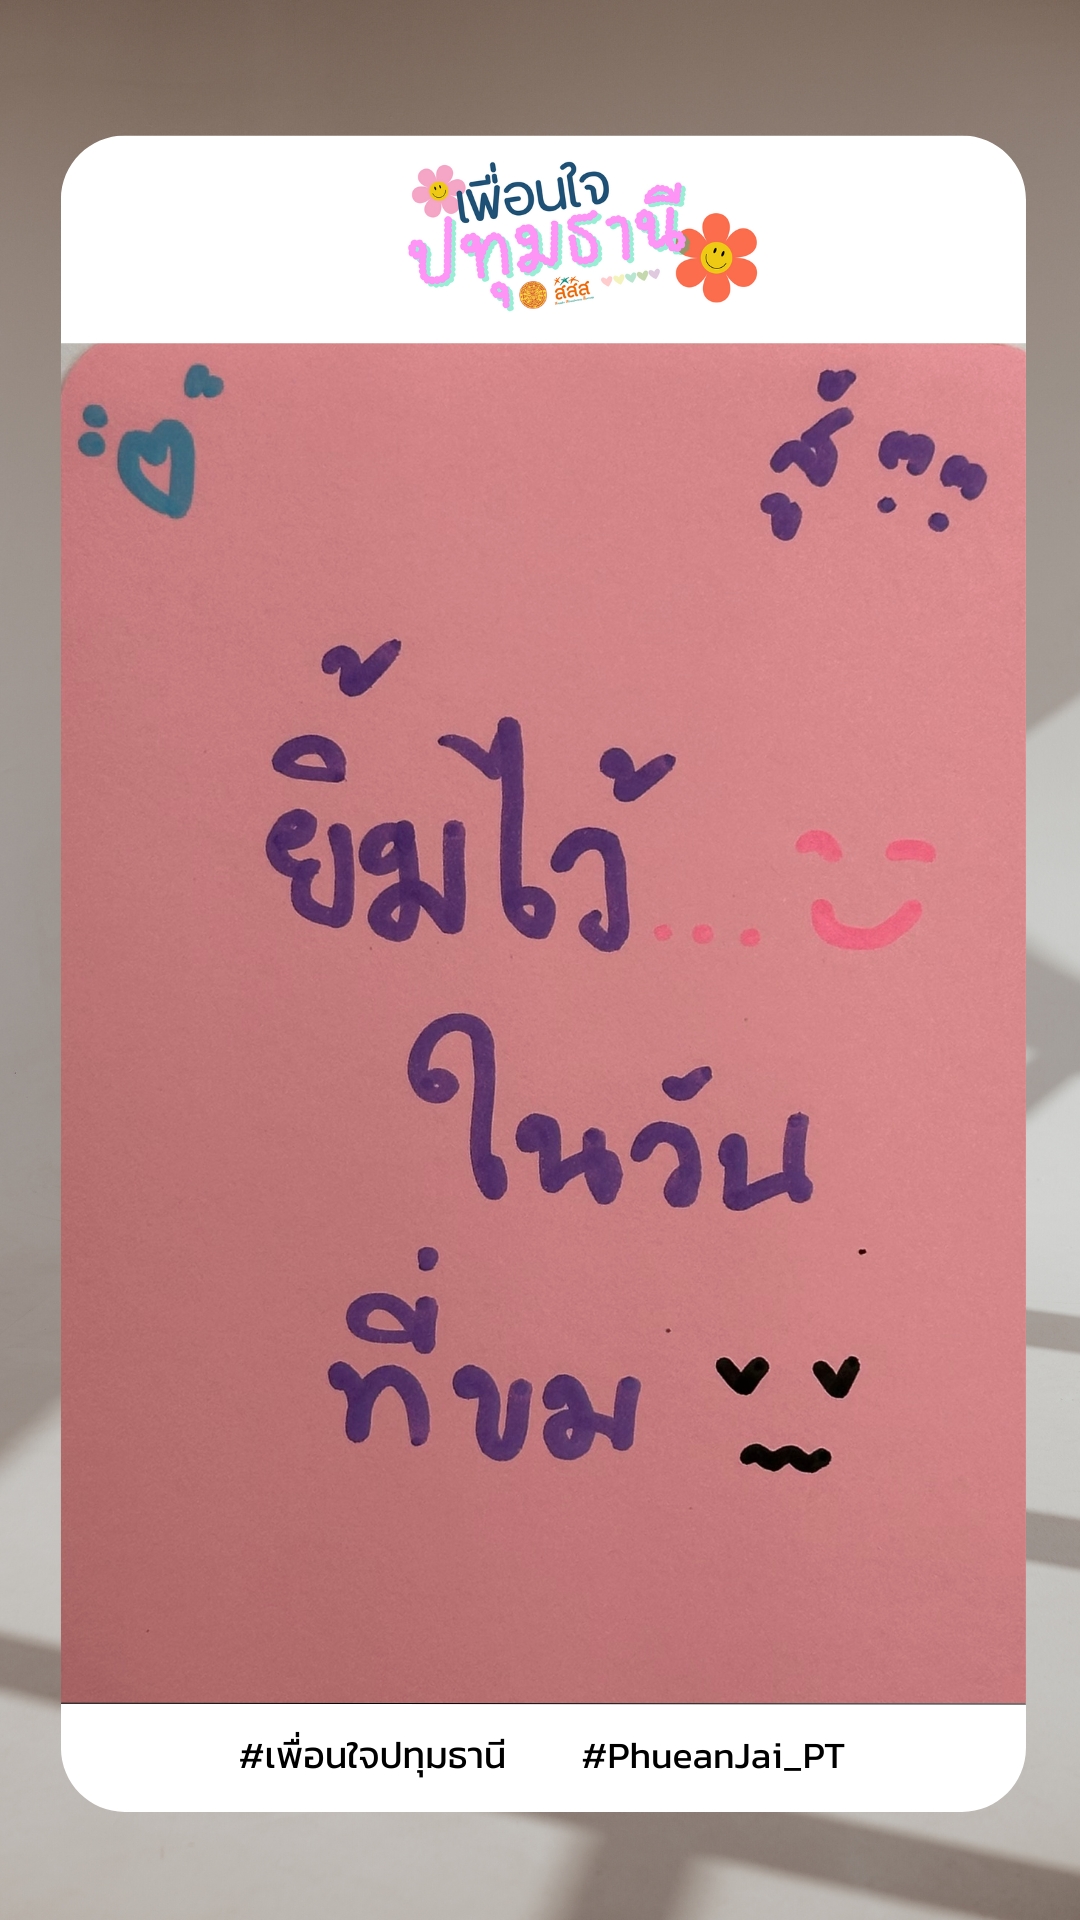 เพื่อนใจ
ปทุมธานี
สสส
สู้ๆๆ
ยิ้มไว้...
ในวัน
ที่ขม
#เพื่อนใจปทุมธานี #PhueanJai_PT